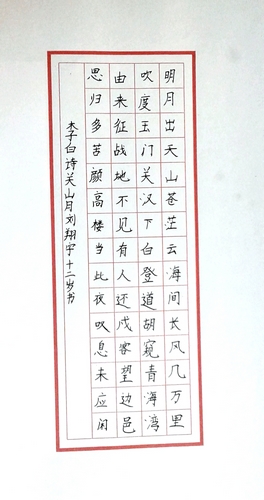 明月出天山苍茫云海间长风几万里
吹度玉门关汉下白登道胡窥青海湾
由来征战地不见有人还戍客望边邑
思归多苦颜高楼当此夜叹息未应闲
李子白诗关山月刘翔宇十二岁书